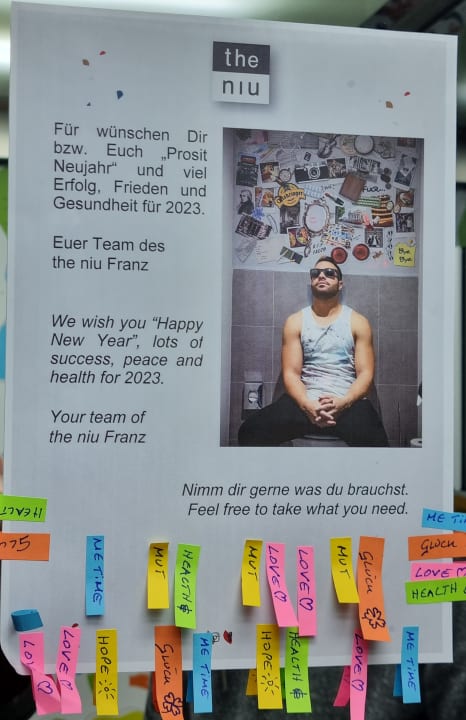 the
niu
Für wünschen Dir
bzw. Euch „Prosit
Neujahr“ und viel
Erfolg, Frieden und
Gesundheit für 2023.
Euer Team des
the niu Franz
We wish you “Happy
New Year”, lots of
success, peace and
health for 2023.
Your team of
the niu Franz
Bye
Bye
Nimm dir gerne was du brauchst.
Feel free to take what you need.
HEALTH
GLÜ
ME TIME
MUT
HEALTH
MUT
LOVE
LOVE
MUT
GLÜCK
ME TIME
GLÜCK
LOVE
HEALTH
LOVE
LOVE
HOPE
GLÜCK
ME TIME
HOPE
HEALTH
LOVE
ME TIME